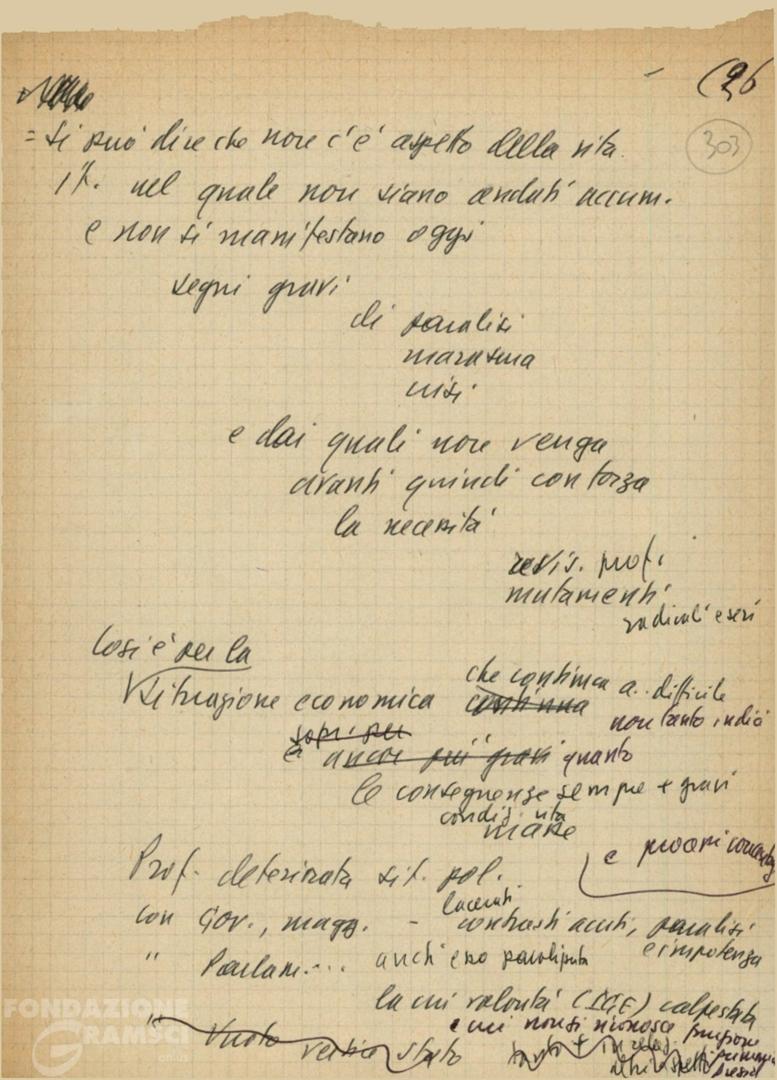 26
303
= Si può dire che non c'è aspetto della vita
it. nel quale non siano andati accum.
e non si manifestano oggi
segni gravi
di paralisi
marasma
crisi
e dai quali non venga
avanti quindi con forza
la necessità
prof.
mutamenti
radicali e seri
Così è per la
situazione economica che continua a.. difficile
continua non tanto indici
e ancor più gravi quanto
le conseguenze sempre + gravi
condiz. vita
masse
e processi
Prof. deteriorata sit. pol.
con Gov., magg. - contrasti acuti, paralisi
lacerati
e impotenza
" Parlam... anch'esso paralizzato
la cui volontà (IGE) calpestata
e cui non si riconosce
" Vuoto vertice stato
FONDAZIONE
GRAMSCI
onlus